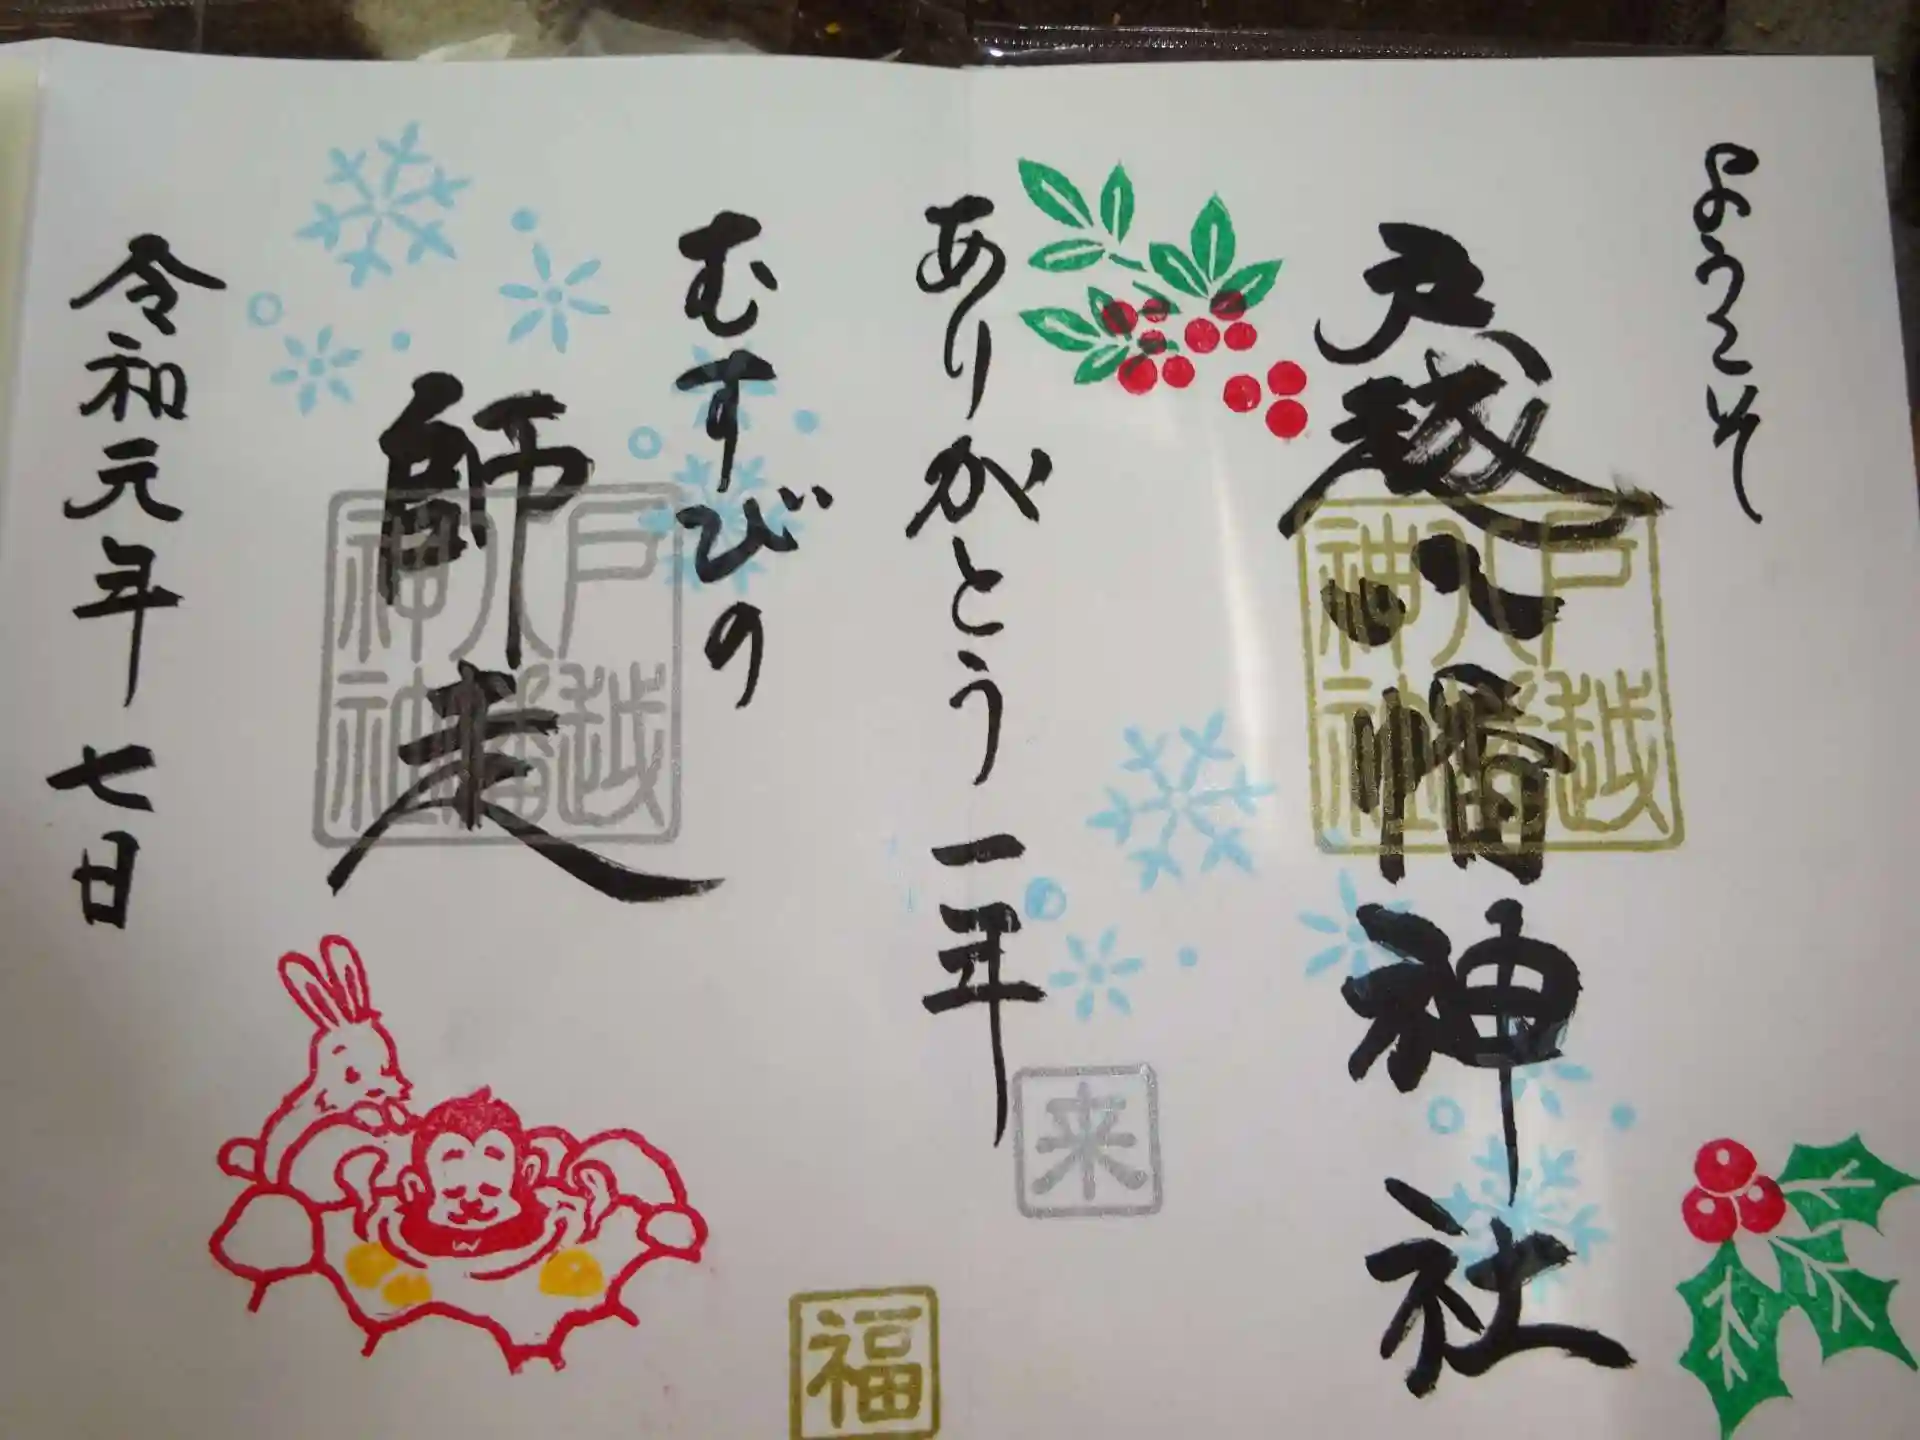 ようこそ
戸越八幡神社
戸越
八幡
神社
ありがとう 一年
来
福
むすびの
師走
戸越
八幡
神社
令和元年 七日